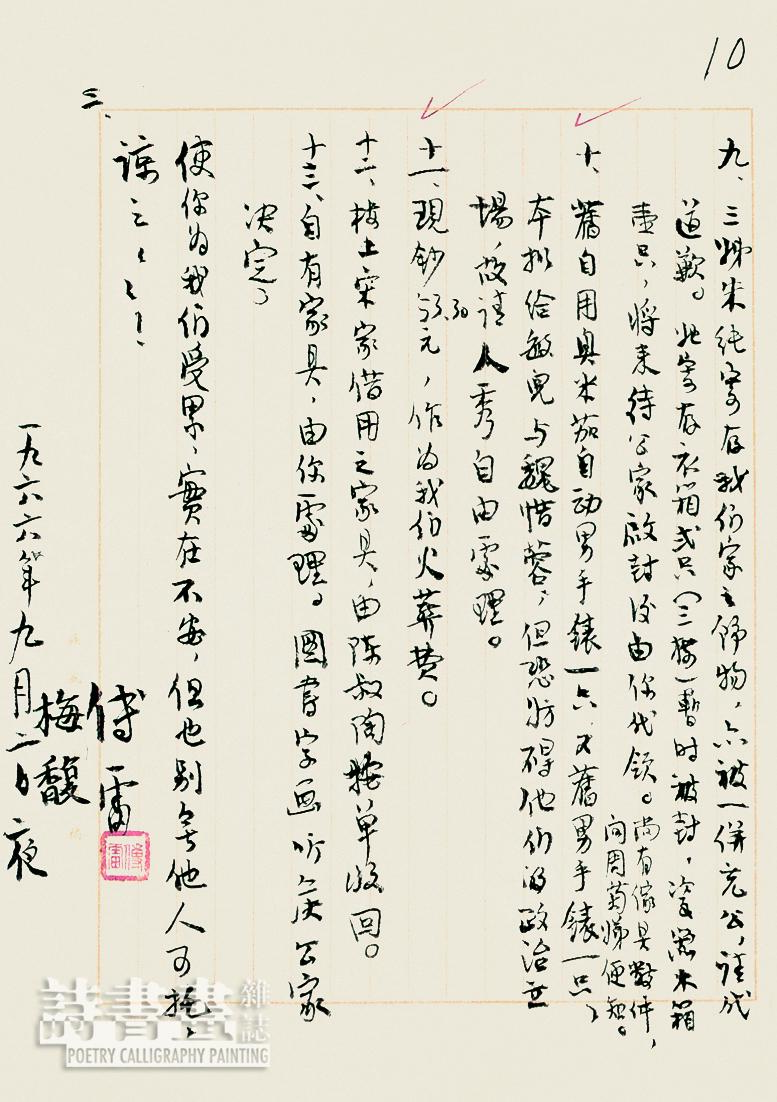 10
三、
九、三姊朱纯寄存我们家之饰物,亦被一併充公,请代
道歉。她寄存衣箱贰只(三楼)暂时被封,瓷器木箱
壹只,将来待公家啟封后由你代领。尚有傢具数件,
问周菊娣便知。
十、舊自用奥米茄自动男手錶一只,又舊男手錶一只、
本拟给敏兒与魏惜蓉,但恐妨碍他们的政治立
場,故请人秀自由處理。
十一、現鈔 53.30元,作为我们火葬費。
十二、楼上宋家借用之家具,由陈叔陶按单收回。
十三、自有家具,由你處理。圖書字画听候公家
决定。
使你为我们受累,實在不安,但也别无他人可托,
谅之谅之!
傅雷
梅馥
一九六六年九月二日夜
傅雷
詩書畫
雜誌
POETRY CALLIGRAPHY PAINTING